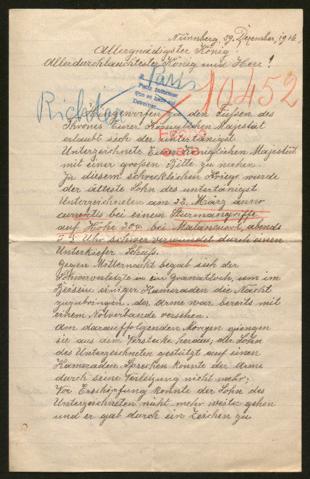 Nürnberg, 29. Dezember, 1916.
Allergnädigster König!
Allerdurchlauchtester König und Herr!
Paris
Richter
10452
zu den Füssen des
Thrones Eurer Königlichen Majestät
erlaubt sich der untertänigst
Unterzeichnete Eurer Königlichen Majestät
mit einer großen Bitte zu nahen.
In diesem schrecklichen Kriege wurde
der älteste Sohn des untertänigst
Unterzeichneten am 22. März anno
currentis bei einem Sturmangriffe
auf Höhe bei Malancourt, abends
Uhr schwer verwundet durch einen
Unterkiefer Schuss.
Gegen Mitternacht begab sich der
Schwerverletzte in ein Granatloch, um im
Beisein einiger Kameraden die Nacht
zuzubringen, der Arme war bereits mit
einem Notverbande versehen.
Den darauffolgenden Morgen gingen
sie aus dem Verstecke heraus, der Sohn
des Unterzeichneten gestützt auf einen
Kameraden. Sprechen konnte der Arme
durch seine Verletzung nicht mehr;
Vor Erschöpfung konnte der Sohn des
Unterzeichneten nicht mehr weiter gehen
und er gab durch ein Zeichen zu